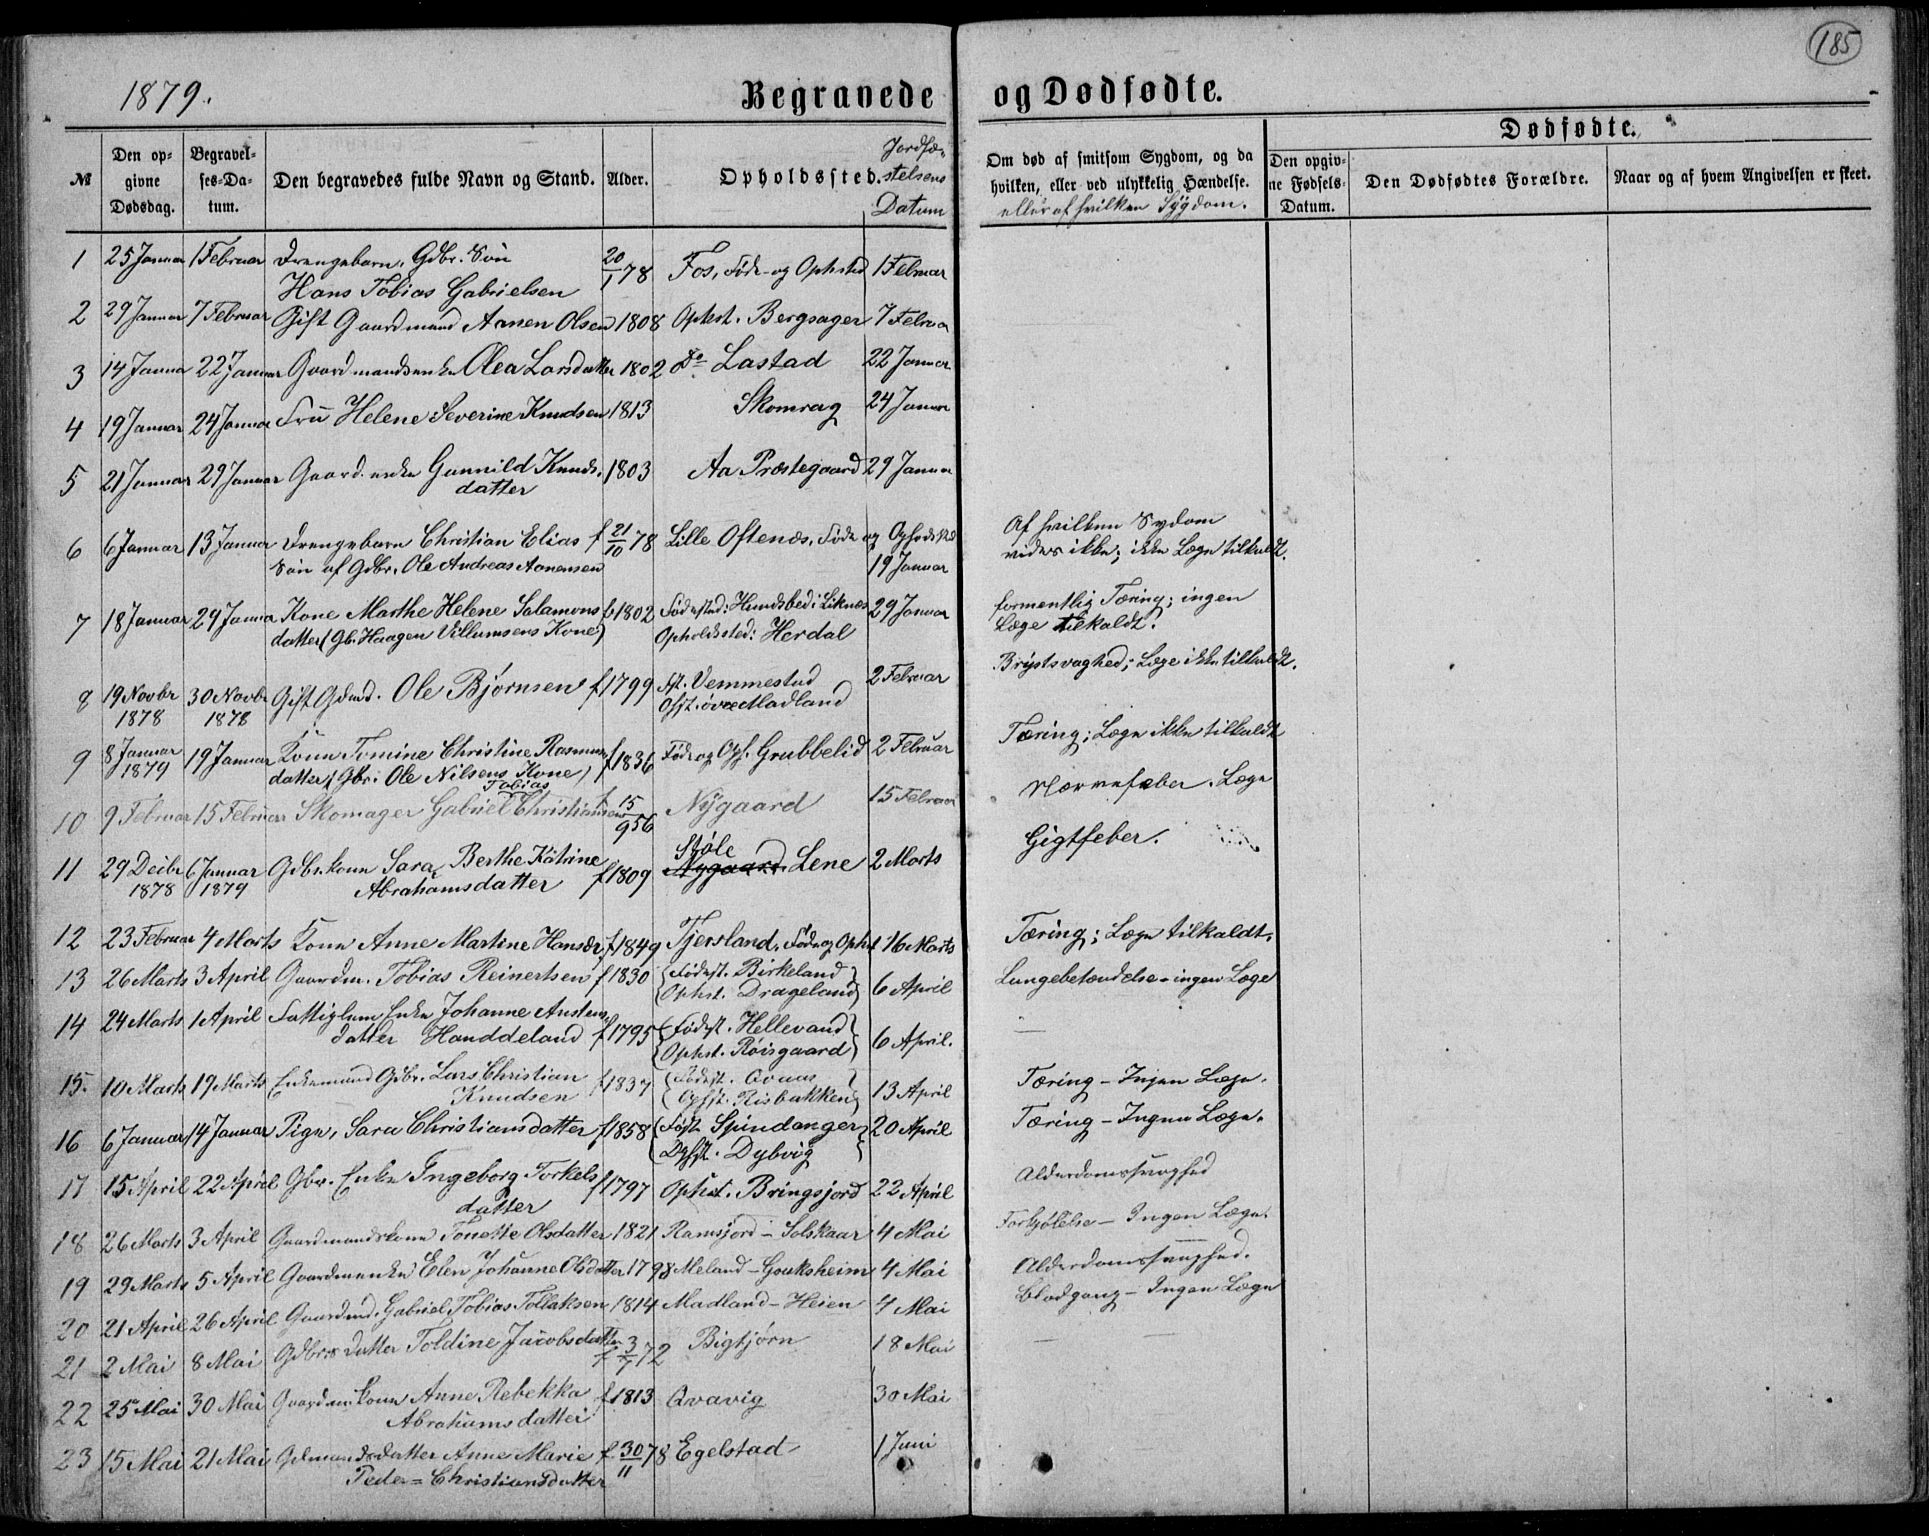 185
1879.
Begravede og Dødfødte.
Dødfødte.
№
Den op-
givne
Dødsdag.
Begravel-
ses-Da-
tum.
Den begravedes fulde Navn og Stand.
Alder.
Opholdssted.
Jordfæ-
stelsens
Datum
Om død af smitsom Sygdom, og da
hvilken, eller ved ulykkelig Hændelse.
eller af hvilken Sygdom.
Den opgiv-
ne Fødsels-
Datum.
Den Dødfødtes Forældre.
Naar og af hvem Angivelsen er skeet.
1 25 Januar 1 Februar Drengebarn, Gdbr. Søn 20/1 78 Fos, Føde- og Ophsted 1 Februar
Hans Tobias Gabrielsen
2 29 Januar 7 Februar Gift Gaardmand Aanen Olsen 1808 Ophst. Bergsager 7 Februar
3 14 Januar 22 Januar Gaardmandsenke Olea Larsdatter 1802 Do Lastad 22 Januar
4 19 Januar 24 Januar Fru Helene Severine Knudsen 1813 Skomrag 24 Januar
5 21 Januar 29 Januar Gaard. enke Gunnild Knuds. 1803 Aa Præstegaard 29 Januar
datter
6 6 Januar 13 Januar Drengebarn Christian Elias f 21/10 78 Lille Oftenæs, Føde og Ophodsted Af hvilken Sydom
Søn af Gdbr. Ole Andreas Aanensen 19 Januar vides ikke; ikke Læge tilkaldt.
7 18 Januar 29 Januar Kone Marthe Helene Salamons f 1802 Fødested: Hundsbed i Liknæs 29 Januar formentlig Tæring; ingen
datter (Gb. Haagen Villumsens Kone) Opholdssted: Herdal Læge tilkaldt.
8 19 Novbr 30 Novbr Gift Gdmd. Ole Bjørnsen f 1799 Fst. Vemmestad 2 Februar Brystsvaghed; Læge ikke tilkaldt.
1878 1878 Ofst. øvre Madland
9 8 Januar 19 Januar Kone Tomine Christine Rasmus f 1836 Føde og Oph. Grubbelid 2 Februar Tæring; Læge ikke tilkaldt
1879 datter (Gbr. Ole Nilsens Kone)
10 9 Februar 15 Februar Skomager Gabriel Tobias Christiansen f 15/9 56 Nygaard 15 Februar Nervefeber. Læge
11 29 Decbr 6 Januar Gdbr. kone Sara Berthe Katrine f 1809 Støle Nygaard. Lene 2 Marts Gigtfeber.
1878 1879 Abrahamsdatter
12 23 Februar 4 Marts Kone Anne Martine Hansdr f 1849 Tjersland, Føde og Ophst 16 Marts Tæring; Læge tilkaldt.
13 26 Marts 3 April Gaardm. Tobias Reinertsen f 1830 Fødest. Birkeland 6 April Lungebetændelse - ingen Læge
Ophst. Drageland
14 24 Marts 1 April Fattiglem Enke Johanne Austens f 1795 Fødest. Hellevand 6 April. —
datter Handdeland Ophst. Røisgaard
15. 10 Marts 19 Marts Enkemand Gdbr. Lars Christian f 1837 Fødest. Qvaas 13 April Tæring - Ingen Læge.
Knudsen Ophst. Risbakken
16 6 Januar 14 Januar Pige, Sara Christiansdatter f 1858 Føst. Spindanger 20 April Tæring - Ingen Læge.
Ophst. Dybvig
17 15 April 22 April Gbr. Enke Ingeborg Torkels f 1797 Ophst. Bringsjord 22 April Alderdomssvaghed
datter
18 26 Marts 3 April Gaardmandskone Tonette Olsdatter 1821 Ramsjord - Solskaar 4 Mai Forkjølelse - Ingen Læge.
19 29 Marts 5 April Gaardm enke Elen Johanne Olsdatter 1798 Meland - Gouksheim 4 Mai Alderdomssvaghed.
20 21 April 26 April Gaardmd. Gabriel Tobias Tollaksen 1814 Madland - Heien 4 Mai Blodgang - Ingen Læge
21 2 Mai 8 Mai Gdbrs datter Toldine Jacobsdatter f 3/7 72 Bigtjørn 18 Mai — —
22 25 Mai 30 Mai Gaardm. kone Anne Rebekka f 1813 Qvavig 30 Mai
Abrahamsdatter
23 15 Mai 21 Mai Gdmandsdatter Anne Marie f 30/11 78 Egelstad 1 Juni
Peder = Christiansdatter